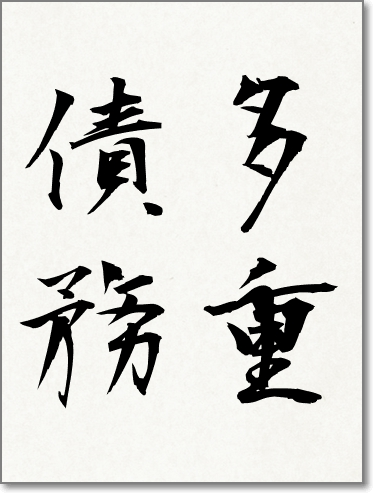 多重
債務